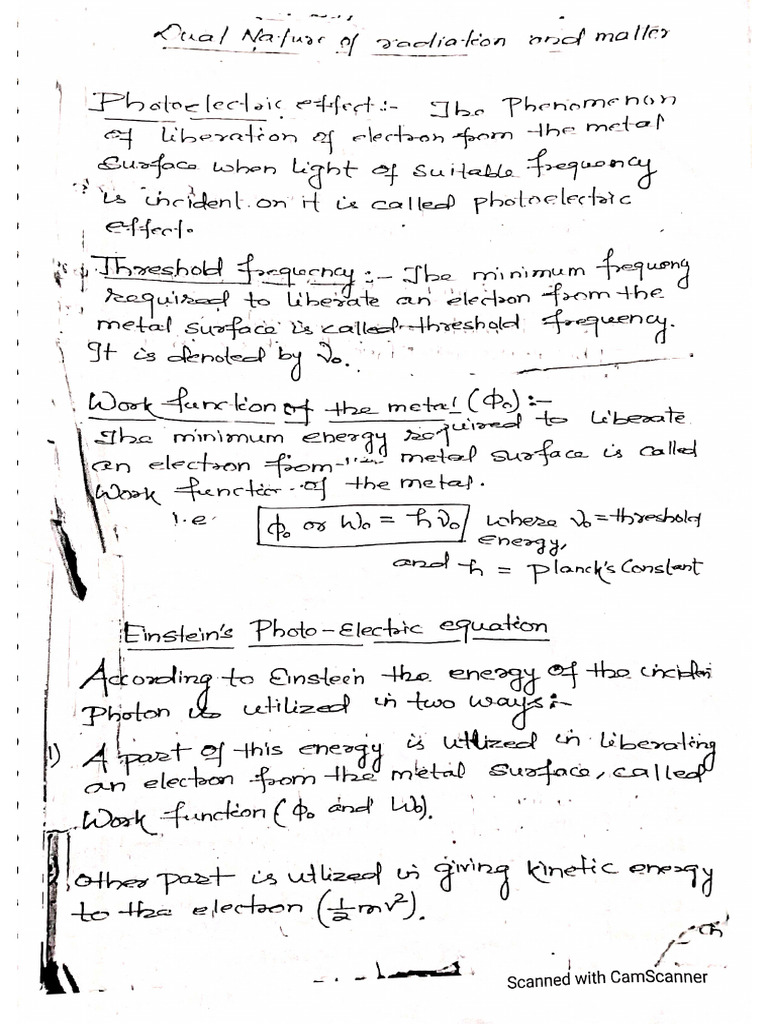 Dual Nature of radiation and matter
Photoelectric effect:- The Phenomenon
of liberation of electron from the metal
surface when light of suitable frequency
is incident on it is called photoelectric
effect.
Threshold frequency:- The minimum frequency
required to liberate an electron from the
metal surface is called threshold frequency.
It is denoted by ν₀.
Work function of the metal (Φ₀):-
The minimum energy required to liberate
an electron from metal surface is called
Work function of the metal.
i.e. Φ₀ or W₀ = hν₀ where ν₀ = threshold
energy,
and h = Planck's Constant
Einstein's Photo-Electric equation
According to Einstein the energy of the incident
Photon is utilized in two ways:-
1) A part of this energy is utlized in liberating
an electron from the metal surface, called
Work function (Φ₀ and W₀).
Other part is utlized in giving kinetic energy
to the electron (½mv²).
Scanned with CamScanner